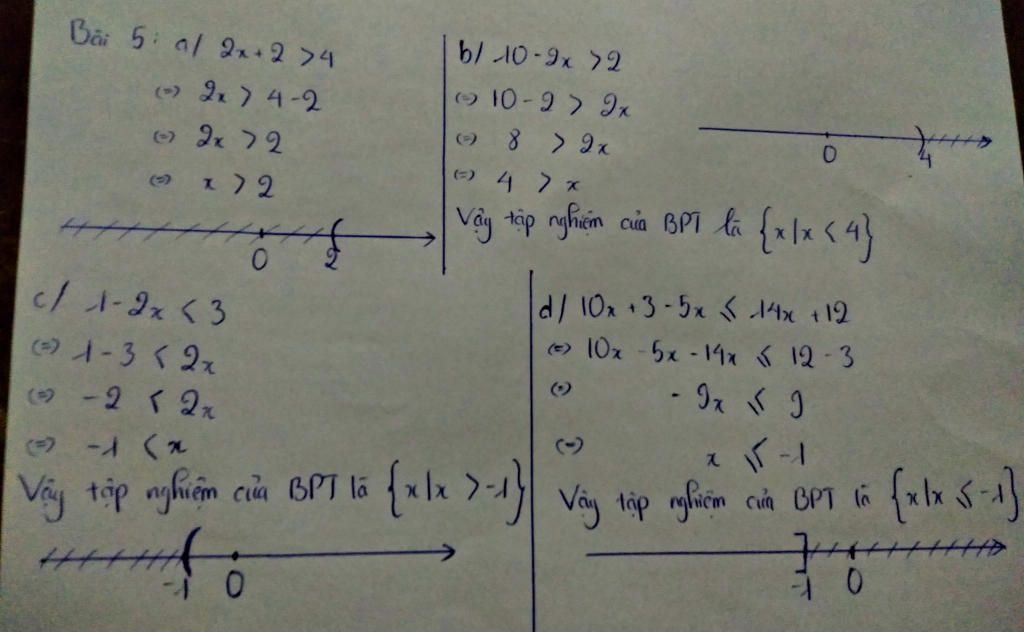 Bài 5: a/ 2x + 2 > 4
(=) 2x > 4 - 2
(=) 2x > 2
(=) x > 2
0 2
b/ 10 - 2x > 2
(=) 10 - 2 > 2x
(=) 8 > 2x
(=) 4 > x
0 4
Vậy tập nghiệm của BPT là {x|x < 4}
c/ 1 - 2x < 3
(=) 1 - 3 < 2x
(=) -2 < 2x
(=) -1 < x
Vậy tập nghiệm của BPT là {x|x > -1}
-1 0
d/ 10x + 3 - 5x ⩽ 14x + 12
(=) 10x - 5x - 14x ⩽ 12 - 3
(=) - 9x ⩽ 9
(=) x ⩽ -1
Vậy tập nghiệm của BPT là {x|x ⩽ -1}
-1 0